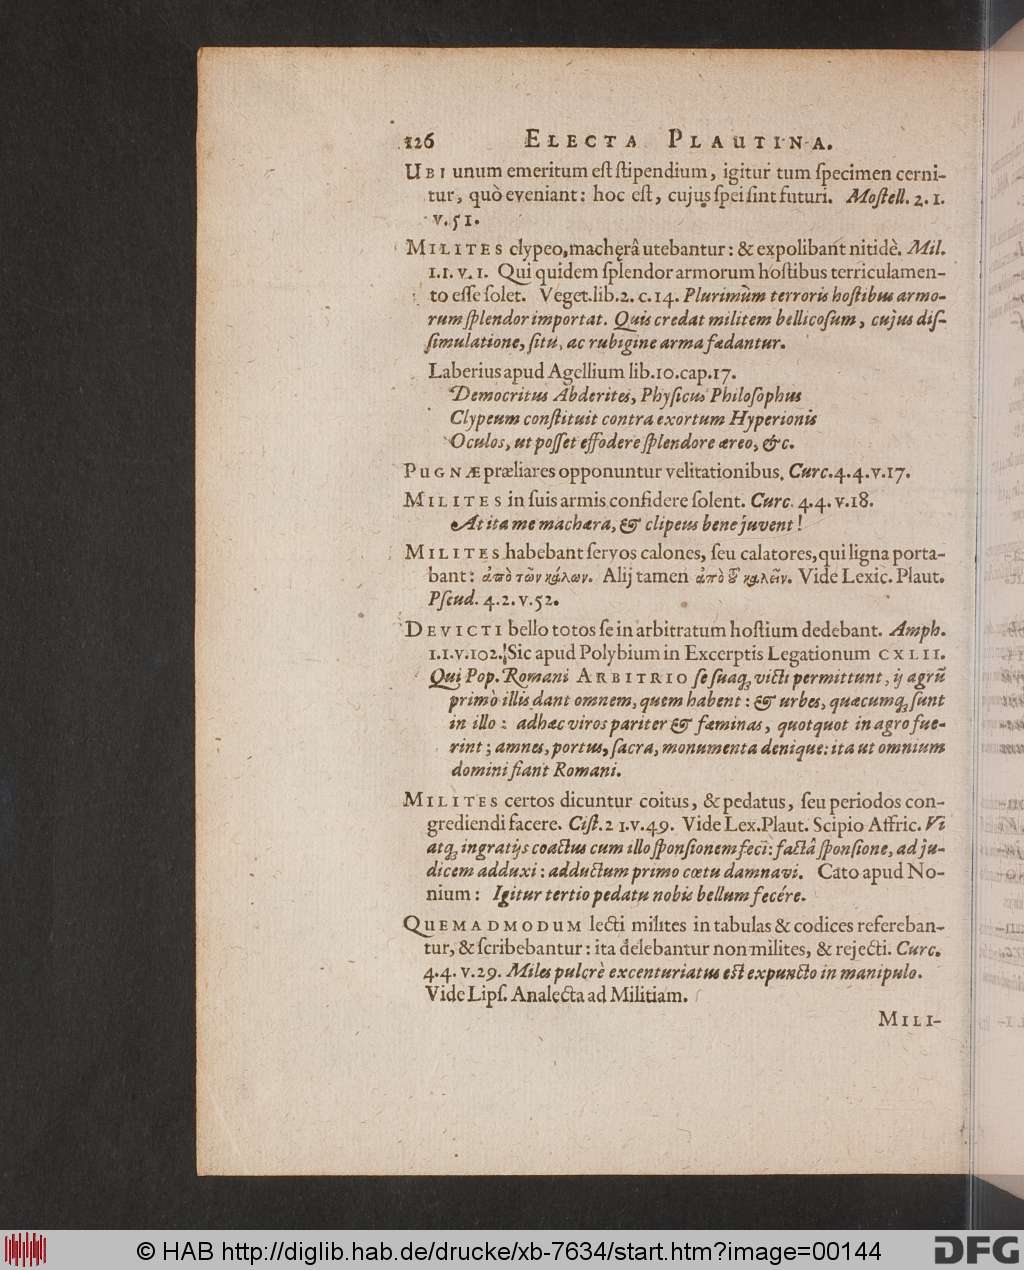 126 ELECTA PLAUTINA.
UBI unum emeritum eſt ſtipendium, igitur tum ſpecimen cerni-
tur, quò eveniant: hoc eſt, cujus ſpei ſint futuri. Moſtell. 2. 1.
v. 51.
MILITES clypeo, machęrâ utebantur: & expolibant nitidè. Mil.
1. 1. v. 1. Qui quidem ſplendor armorum hoſtibus terriculamen-
to eſſe ſolet. Veget. lib. 2. c. 14. Plurimùm terroris hoſtibus armo-
rum ſplendor importat. Quis credat militem bellicoſum, cujus diſ-
ſimulatione, ſitu, ac rubigine arma fœdantur.
Laberius apud Agellium lib. 10. cap. 17.
Democritus Abderites, Phyſicus Philoſophus
Clypeum conſtituit contra exortum Hyperionis
Oculos, ut poſſet effodere ſplendore æreo, &c.
PUGNÆ præliares opponuntur velitationibus. Curc. 4. 4. v. 17.
MILITES in ſuis armis confidere ſolent. Curc. 4. 4. v. 18.
At ita me machæra, & clipeus bene juvent!
MILITES habebant ſervos calones, ſeu calatores, qui ligna porta-
bant: ἀπὸ τῶν κάλων. Alij tamen ἀπὸ τοῦ καλεῖν. Vide Lexic. Plaut.
Pſeud. 4. 2. v. 52.
DEVICTI bello totos ſe in arbitratum hoſtium dedebant. Amph.
1. 1. v. 102. Sic apud Polybium in Excerptis Legationum CXLII.
Qui Pop. Romani ARBITRIO ſe ſuaq; victi permittunt, ij agrũ
primò illis dant omnem, quem habent: & urbes, quæcumq; ſunt
in illo: adhæc viros pariter & fœminas, quotquot in agro fue-
rint; amnes, portus, ſacra, monumenta denique: ita ut omnium
domini fiant Romani.
MILITES certos dicuntur coitus, & pedatus, ſeu periodos con-
grediendi facere. Ciſt. 2 1. v. 49. Vide Lex. Plaut. Scipio Affric. Vi
atq; ingratijs coactus cum illo ſponſionem feci: factâ ſponſione, ad ju-
dicem adduxi: adductum primo cœtu damnavi. Cato apud No-
nium: Igitur tertio pedatu nobis bellum fecére.
QUEMADMODUM lecti milites in tabulas & codices refereban-
tur, & ſcribebantur: ita delebantur non milites, & rejecti. Curc.
4. 4. v. 29. Miles pulcrè excenturiatus eſt expuncto in manipulo.
Vide Lipſ. Analecta ad Militiam.
MILI-
© HAB http://diglib.hab.de/drucke/xb-7634/start.htm?image=00144
DFG